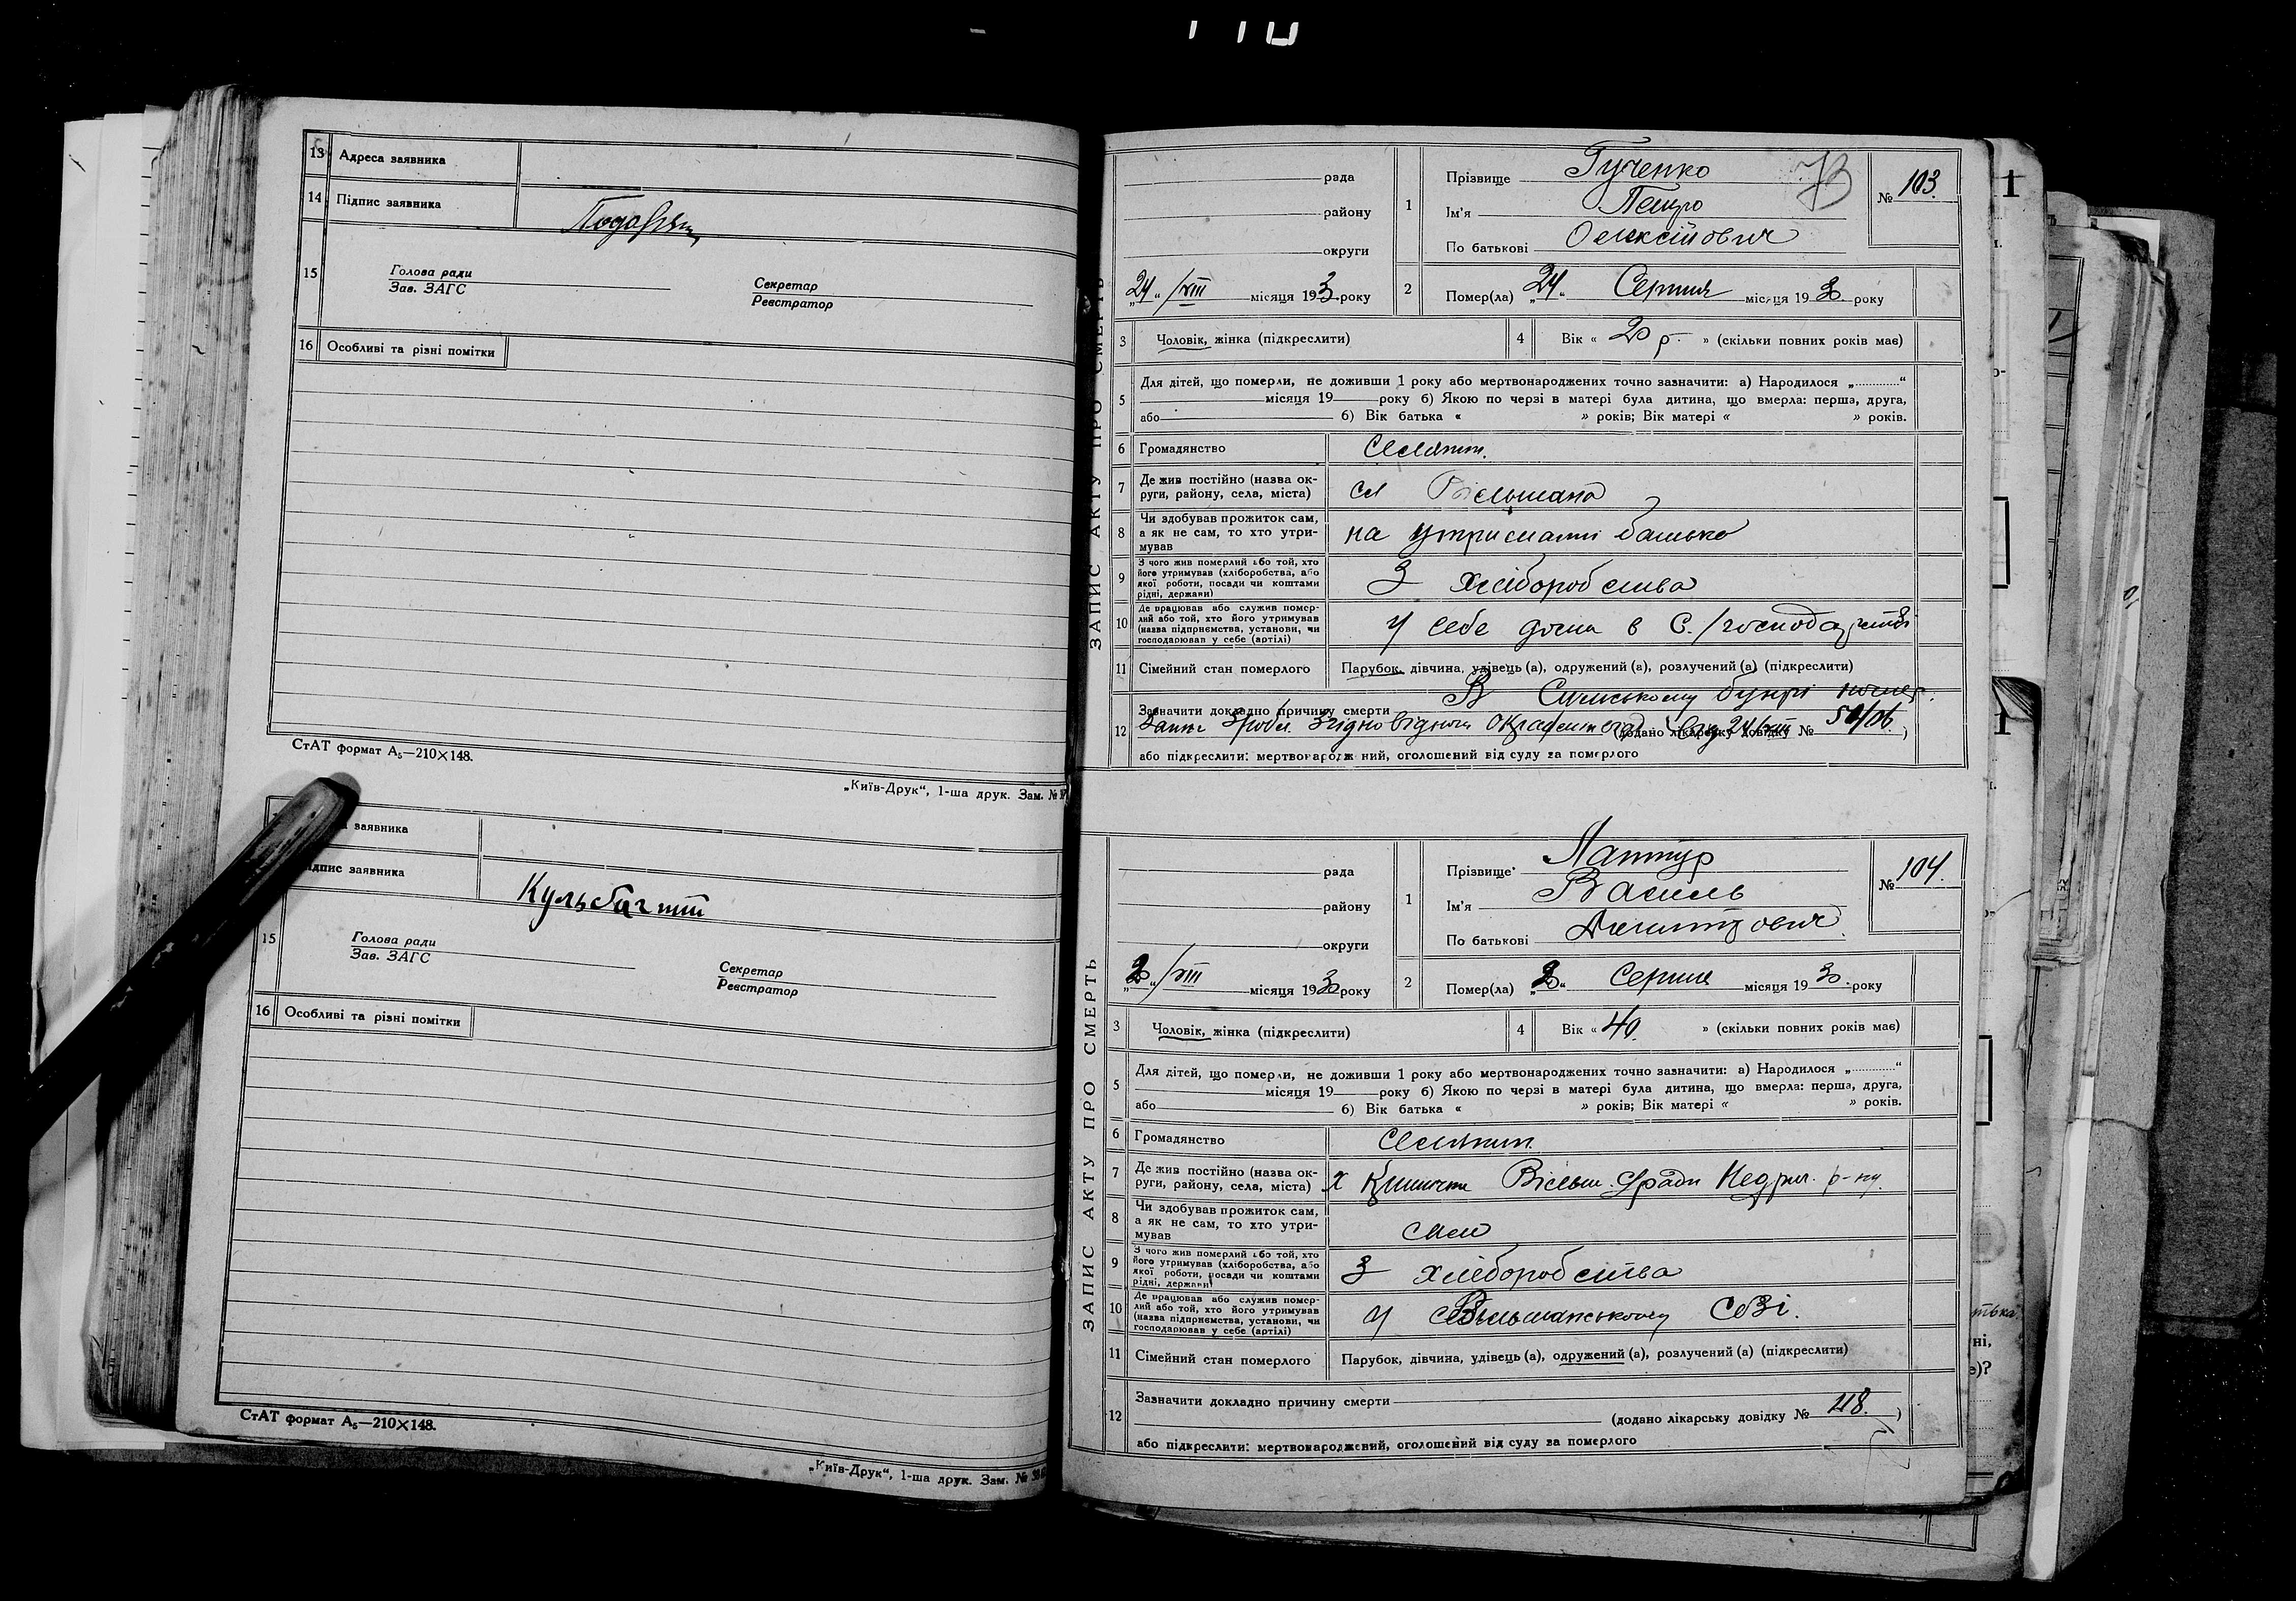 13 Адреса заявника
14 Підпис заявника
15 Голова ради
Зав. ЗАГС
Секретар
Реєстратор
16 Особливі та різні помітки
СтАТ формат А₅—210×148.
„Київ-Друк“, 1-ша друк. Зам. №
заявника
підпис заявника
Кульбачний
15 Голова ради
Зав. ЗАГС
Секретар
Реєстратор
16 Особливі та різні помітки
СтАТ формат А₅—210×148.
„Київ-Друк“, 1-ша друк. Зам. №
ЗАПИС АКТУ ПРО СМЕРТЬ
рада
району
округи
„24“/VIII місяця 193 року
1 Прізвище Гученко
Ім'я Петро
По батькові Олексійович
73
№ 103.
2 Помер(ла) „24“ Серпня місяця 1930 року
3 Чоловік, жінка (підкреслити)
4 Вік « 20 р. » (скільки повних років має)
5 Для дітей, що померли, не доживши 1 року або мертвонароджених точно зазначити: а) Народилося „............“
місяця 19 року б) Якою по черзі в матері була дитина, що вмерла: перша, друга,
або б) Вік батька « » років; Вік матері « » років.
6 Громадянство Селянин.
7 Де жив постійно (назва округи, району, села, міста) сл Вільшана
8 Чи здобував прожиток сам, а як не сам, то хто утримував на утриманні батька
9 З чого жив померлий або той, хто його утримував (хліборобства, або якої роботи, посади чи коштами рідні, держави) З хліборобства
10 Де працював або служив померлий або той, хто його утримував (назва підприємства, установи, чи господарював у себе (артілі) У себе дома в С./господарстві
11 Сімейний стан померлого Парубок, дівчина, удівець (а), одружений (а), розлучений (а) (підкреслити)
В Сумському бупрі помер.
12 Зазначити докладно причину смерти
(додано лікарську довідку № )
або підкреслити: мертвонароджений, оголошений від суду за померлого
ЗАПИС АКТУ ПРО СМЕРТЬ
рада
району
округи
„20“/VIII місяця 1930 року
1 Прізвище Лаптур
Ім'я Василь
По батькові Дмитрович.
№ 104.
2 Помер(ла) „20“ Серпня місяця 1930 року
3 Чоловік, жінка (підкреслити)
4 Вік « 40. » (скільки повних років має)
5 Для дітей, що померли, не доживши 1 року або мертвонароджених точно зазначити: а) Народилося „............“
місяця 19 року б) Якою по черзі в матері була дитина, що вмерла: перша, друга,
або б) Вік батька « » років; Вік матері « » років.
6 Громадянство Селянин.
7 Де жив постійно (назва округи, району, села, міста) х Вільш. с/ради Недриг. р-ну.
8 Чи здобував прожиток сам, а як не сам, то хто утримував сам
9 З чого жив померлий або той, хто його утримував (хліборобства, або якої роботи, посади чи коштами рідні, держави) З хліборобства
10 Де працював або служив померлий або той, хто його утримував (назва підприємства, установи, чи господарював у себе (артілі) У Вільшанському СОЗі.
11 Сімейний стан померлого Парубок, дівчина, удівець (а), одружений (а), розлучений (а) (підкреслити)
12 Зазначити докладно причину смерти
(додано лікарську довідку № 48. )
або підкреслити: мертвонароджений, оголошений від суду за померлого